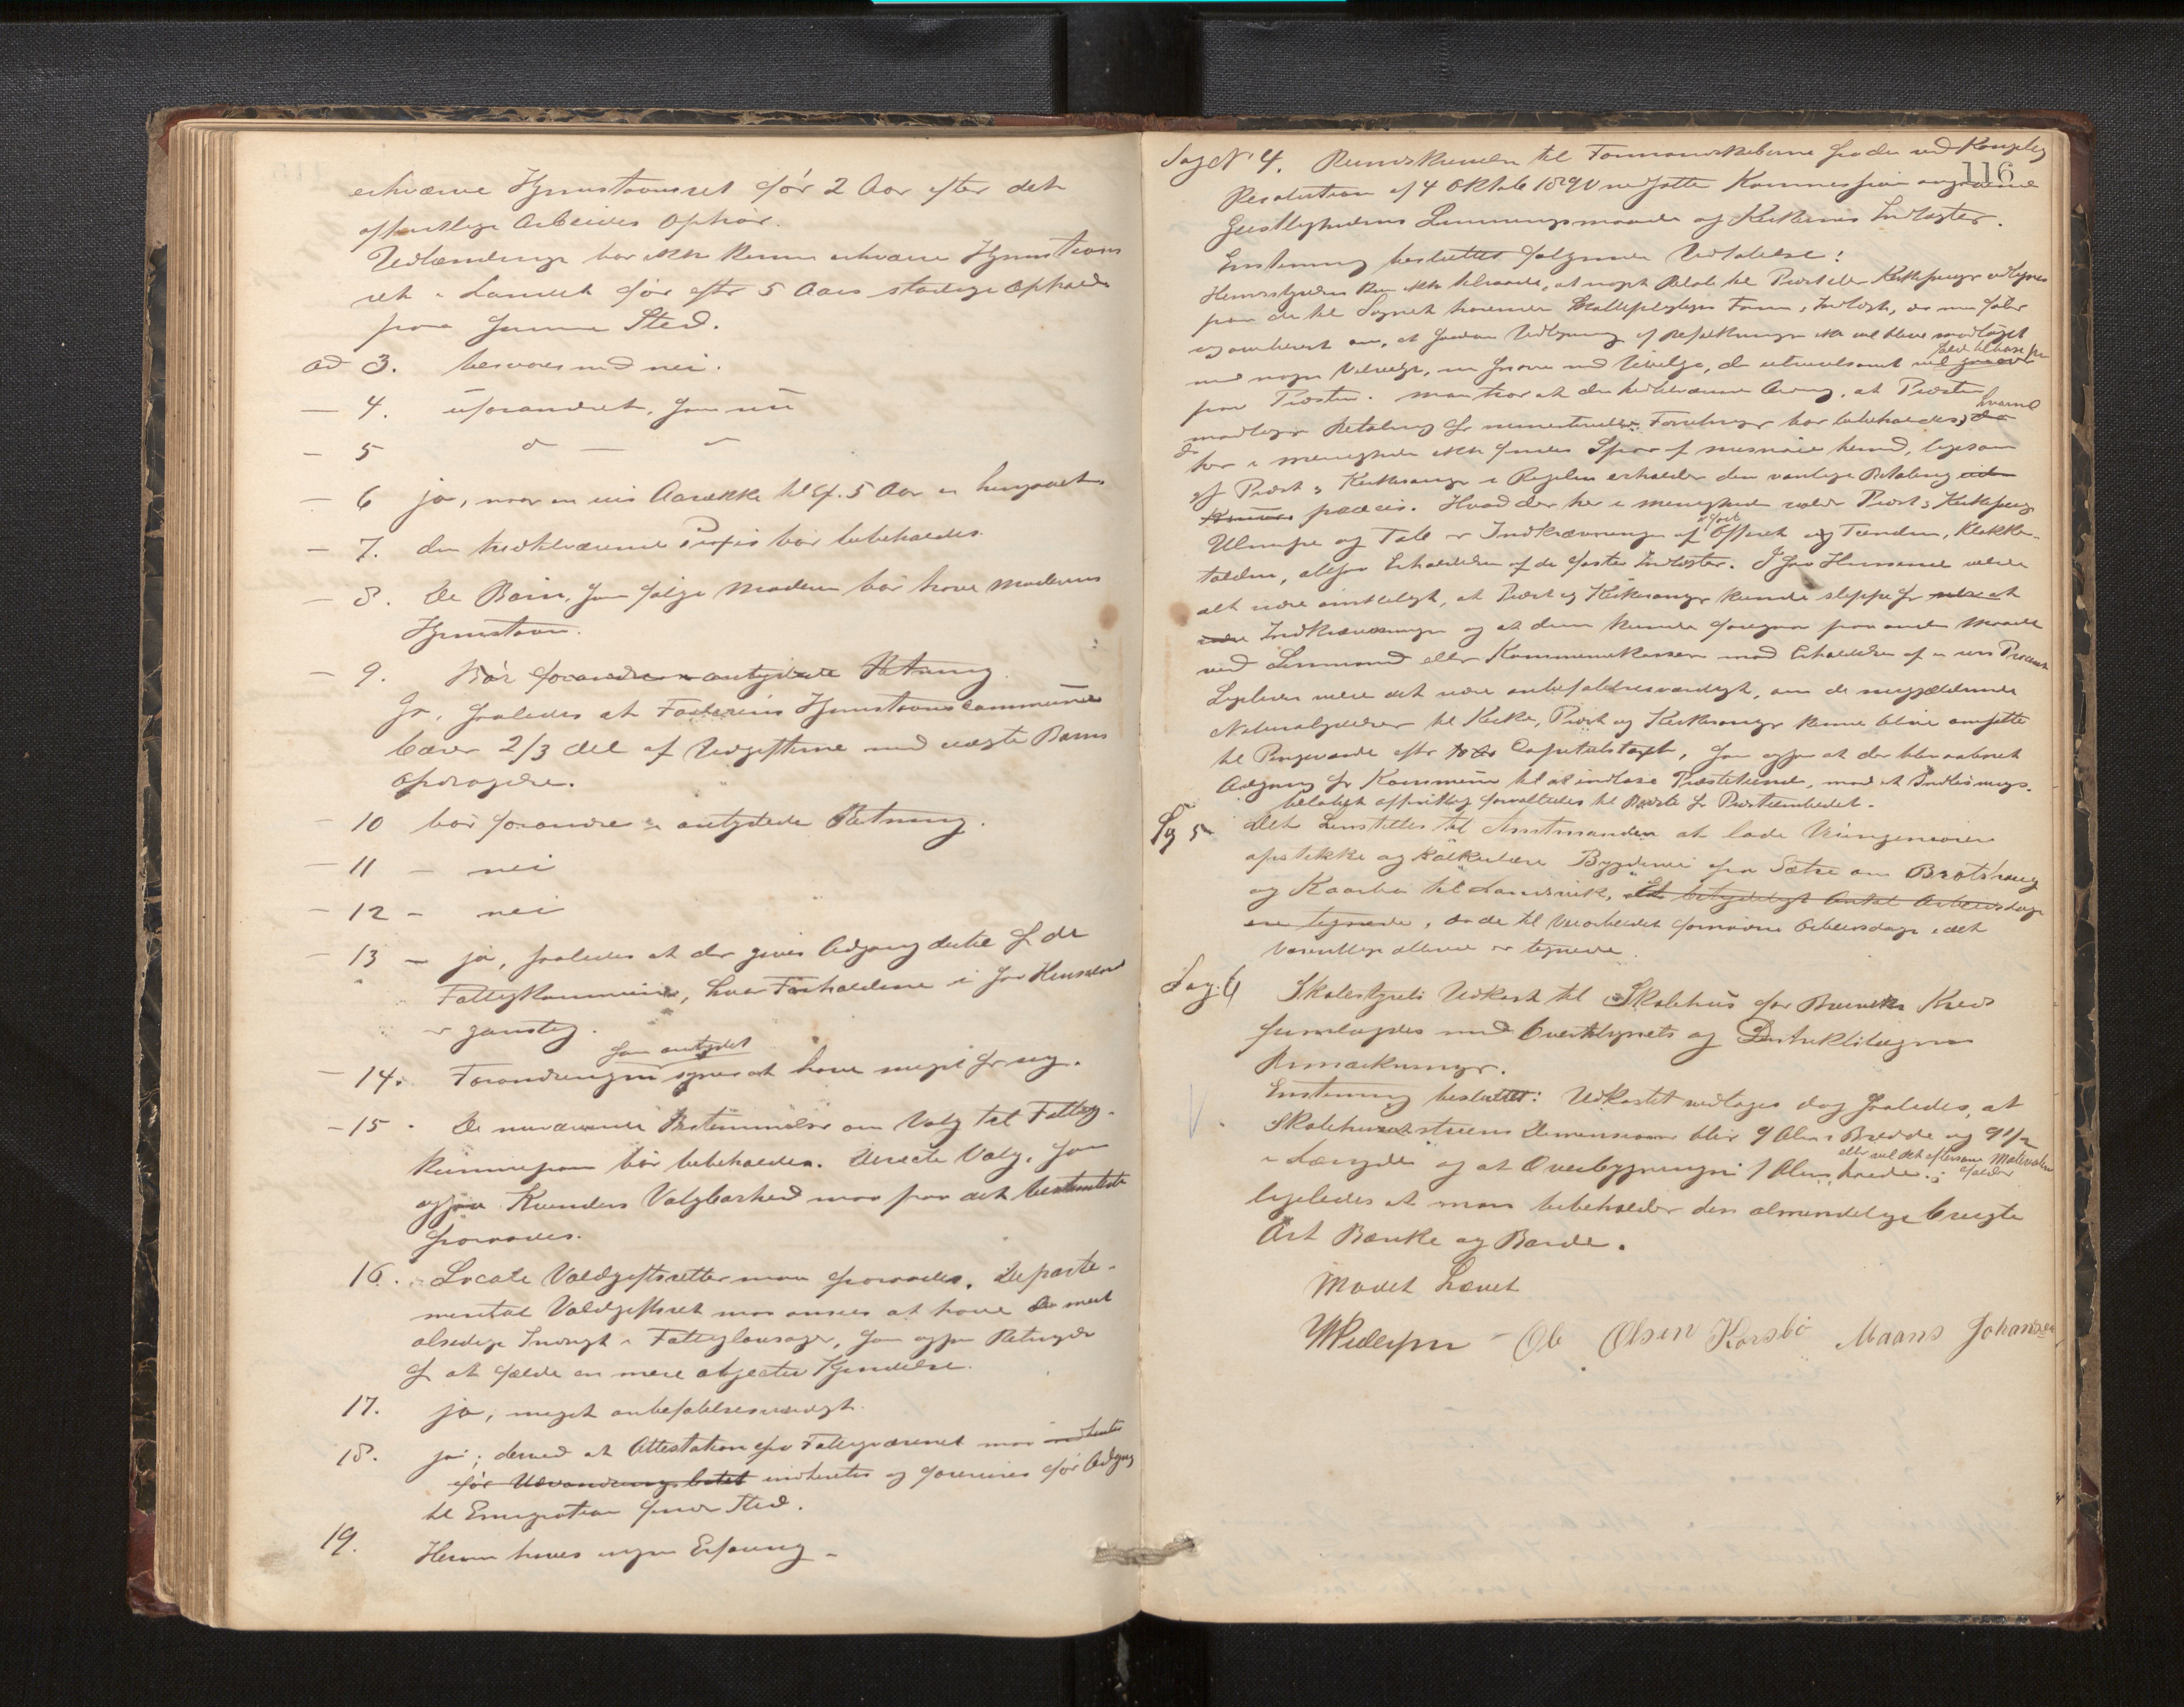 erhværve Hjemstavnsret før 2 Aar efter det
offentlige Arbeides Ophør.
Udlændinge bør ikke kunne erhværve Hjemstavns
ret i Landet før efter 5 Aars stadige Ophold
paa samme Sted.
ad 3. besvares med nei.
— 4. uforandret, som nu
— 5 d — o
— 6 ja, naar en vis Aarække til Ex. 5 Aar er hengaaet
— 7. den hidtilværende Praxis bør bibeholdes.
— 8. De Børn, som følge Moderen bør have Moderens
Hjemstavn.
— 9. Bør forandres i antydede Retning.
Ja, saaledes at Faderens Hjemstavnscommune
bærer 2/3 del af Udgifterne med uægte Børns
Opdragelse.
— 10 bør forandres i antydede Retning.
— 11 — nei
— 12 — nei
— 13 — ja, saaledes at der gives Adgang dertil for de
Fattigkommuner, hvor Forholdene i saa Henseende
er gunstig.
som antydet
— 14. Forandringen synes at have meget for sig.
— 15 . De nuværende Bestemmelser om Valg til Fattig-
kommissionen bør bibeholdes. Directe Valg, som
ogsaa Kvinders Valgbarhed maa paa det bestemteste
fraraades.
16. Locale Voldgiftsretter maa fraraades. Departe-
mental Voldgiftsret maa ansees at have den mest
alsidige Indsigt i Fattiglovsager, som ogsaa Betingelser
for at fælde en mere objectiv Kjendelse.
17. ja, meget anbefalelsesværdigt.
18. ja; derved at Attestation fra Fattigvæsenet maa indhentes
før Udvandringsbillet indhentes og forevises før Adgang
til Emigration finder Sted.
19. Herom haves ingen Erfaring —
116
Sag No 4. Rundskrivelse til Formandskaberne fra den ved Kongelig
Resolution af 4 Oktober 1890 nedsatte Kommission angaaende
Geistlighedens Lønningsmaade og Kirkernes Indtægter.
Enstemmig besluttet følgende Udtalelse:
Herredsstyrelsen kan ikke tilraade, at noget Beløb til Præst eller Kirkesanger udlignes
paa de til Sognet hørende Skattepligtiges Formue & Indtægt, da man føler
sig overbevist om, at saadan Udligning af Befolkningen ikke vil blive modtaget
med nogen Velvilje, men snarere med Uvilje, der utvivlsomt vil
falde tilbage paa
paa Præsten. Man tror at den hidtilværende Orden, at Præsten
modtager Betaling for ministerielle Forretninger bør bibeholdes, da
hvorved
der i Menigheden ikke findes Spor af misnøie herved, ligesom
af Præst & Kirkesanger i Regelen erholder den vanlige Betaling uden
præcis. Hvad der her i Menigheden volder Præst & Kirkesanger
Ulempe og Tab er Indkrævningen af Offeret og Tienden, Klokker-
tolden, altsaa Erholdelsen af de faste Indtægter. I saa Henseende vilde
det være ønskeligt, at Præst og Kirkesanger kunde slippe for at
Indkrævningen og at denne kunde foregaa paa anden Maade
ved Lensmand eller Kommunekassen mod Erholdelse af en vis Procent
Ligeledes vilde det være anbefalelsesværdigt, om de nugjældende
Naturalydelser til Kirke, Præst og Kirkesanger kunne blive omsatte
til Pengeværdi efter Capitelstaxt, som ogsaa at der blev aabnet
Adgang for Kommunen til at indløse Præstetiende, mod at Indløsnings-
beløbet offentlig forvaltedes til Bedste for Præsteembedet.
Sag 5 Det henstilles til Amtmanden at lade Veiingeniøren
opstikke og kalkulere Bygdevei fra Sætre om Brotshaug
og Kaarbø til Landsvik, et betydeligt Antal Arbeidsdage
ere tegnede, da de til Veiarbeidet fornødne Arbeidsdage i det
væsentlige allerede er tegnede.
Sag 6 Skolestyrets Udkast til Skolehus for Bruviks Kreds
fremlagdes med Overtilsynets og Distriktslægens
Bemærkninger.
Enstemmig besluttet: Udkastet vedtages dog saaledes, at
Skoleværelsets Dimensioner blir 9 Alen i Bredde og 9 1/2
i Længde og at Overbygningen 1 Alen brede;
eller vel det eftersom Materialerne falder
ligeledes at man bibeholder den almindelige brugte
Art Bænke og Borde.
Mødet hævet
Ole Olsen Korsbø Maans Johansen